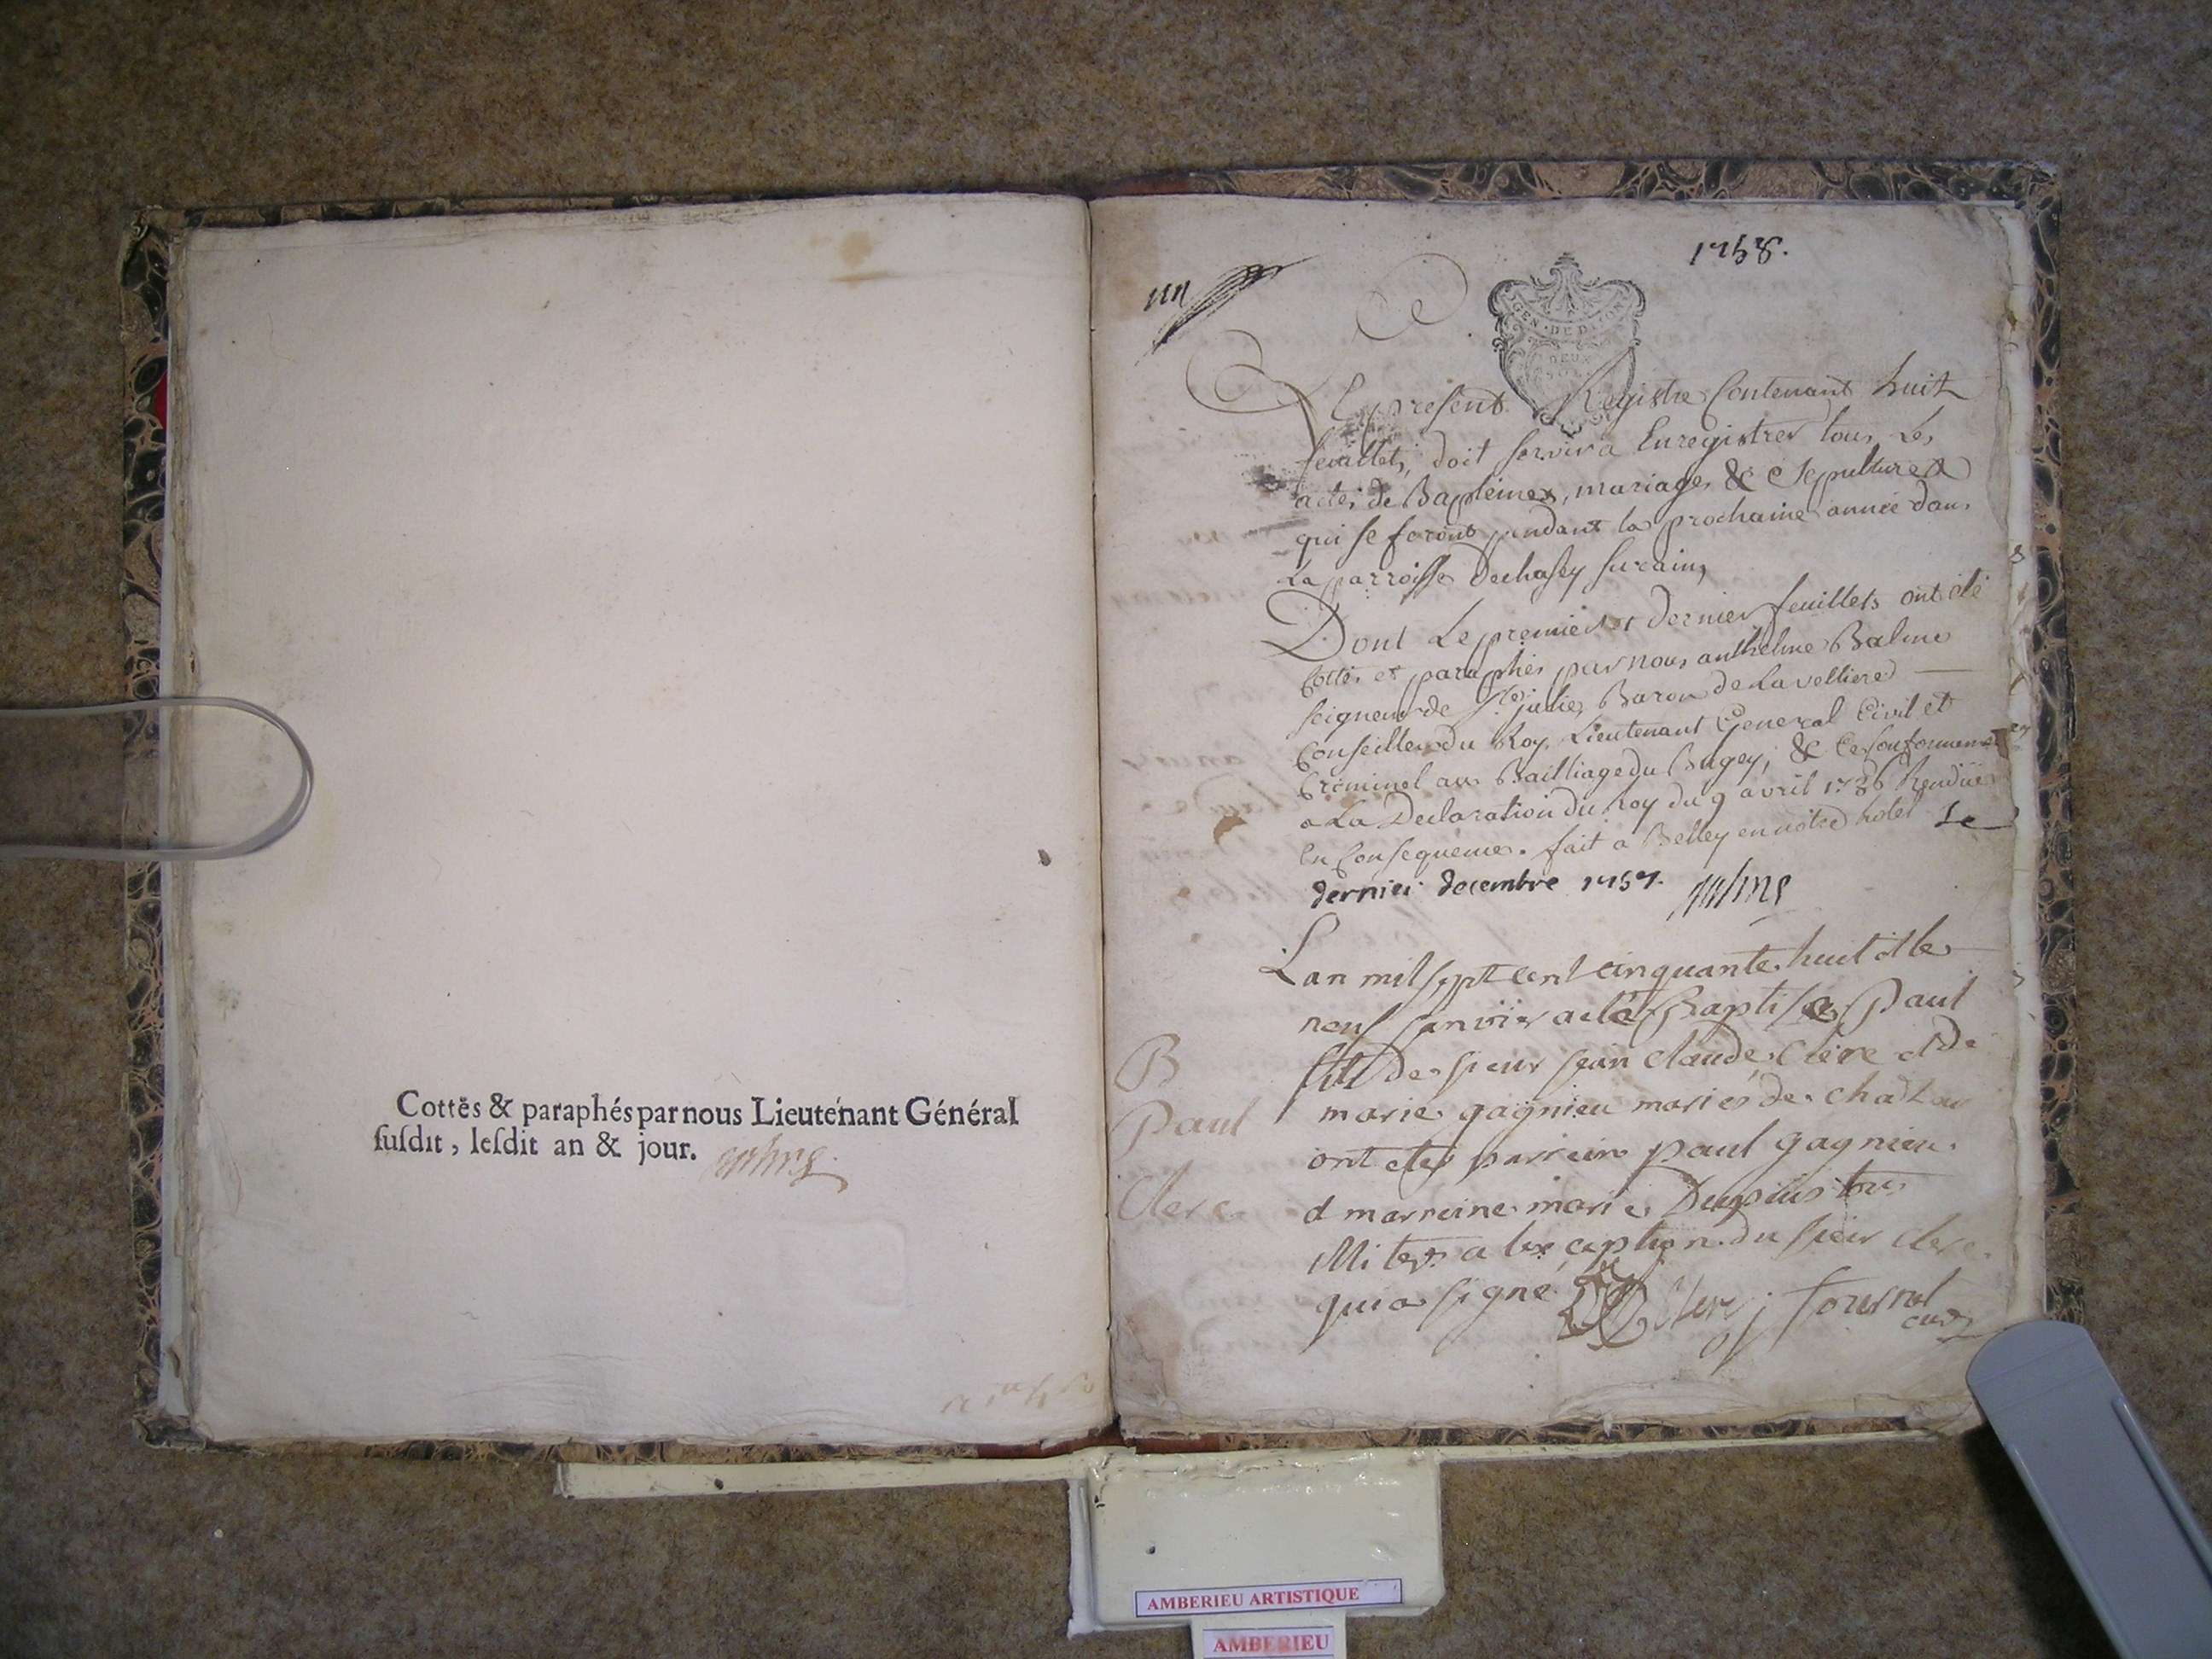 Cottés & paraphés par nous Lieutenant Général
susdit, lesdit an & jour.
1758.
un
GEN·DE DIJON
DEUX
SOLS
Le present Registre Contenant huit
feuillets, doit servir a Enregistrer tous Les
actes de Baptêmes, mariages & Sepultures
qui se feront pendant la prochaine année dans
La parroisse Dechasey surains
Dont Le premier et dernier feuillets ont été
Cottés et paraphés par nous anthelme Balme
seigneur de Ste julie, Baron de La velliere
Conseiller du Roy, Lieutenant General Civil et
Criminel au Bailliage du Bugey, & Ce Conformement
a La Declaration du Roy du 9 avril 1736 Rendüe
En Consequence. fait a Belley en nôtre hotel Le
dernier decembre 1757. Balme
B
Paul
Clerc
Lan mil sept cent cinquante huit et le
neuf janvier a eté Baptisé Paul
fils de sieur jean claude Clerc et de
marie gagnieu mariés de
ont etes parrein paul gagnieu
et marreine marie
a lexception du sieur clerc
qui a signé Clerc j fournel
curé
AMBERIEU ARTISTIQUE
AMBERIEU